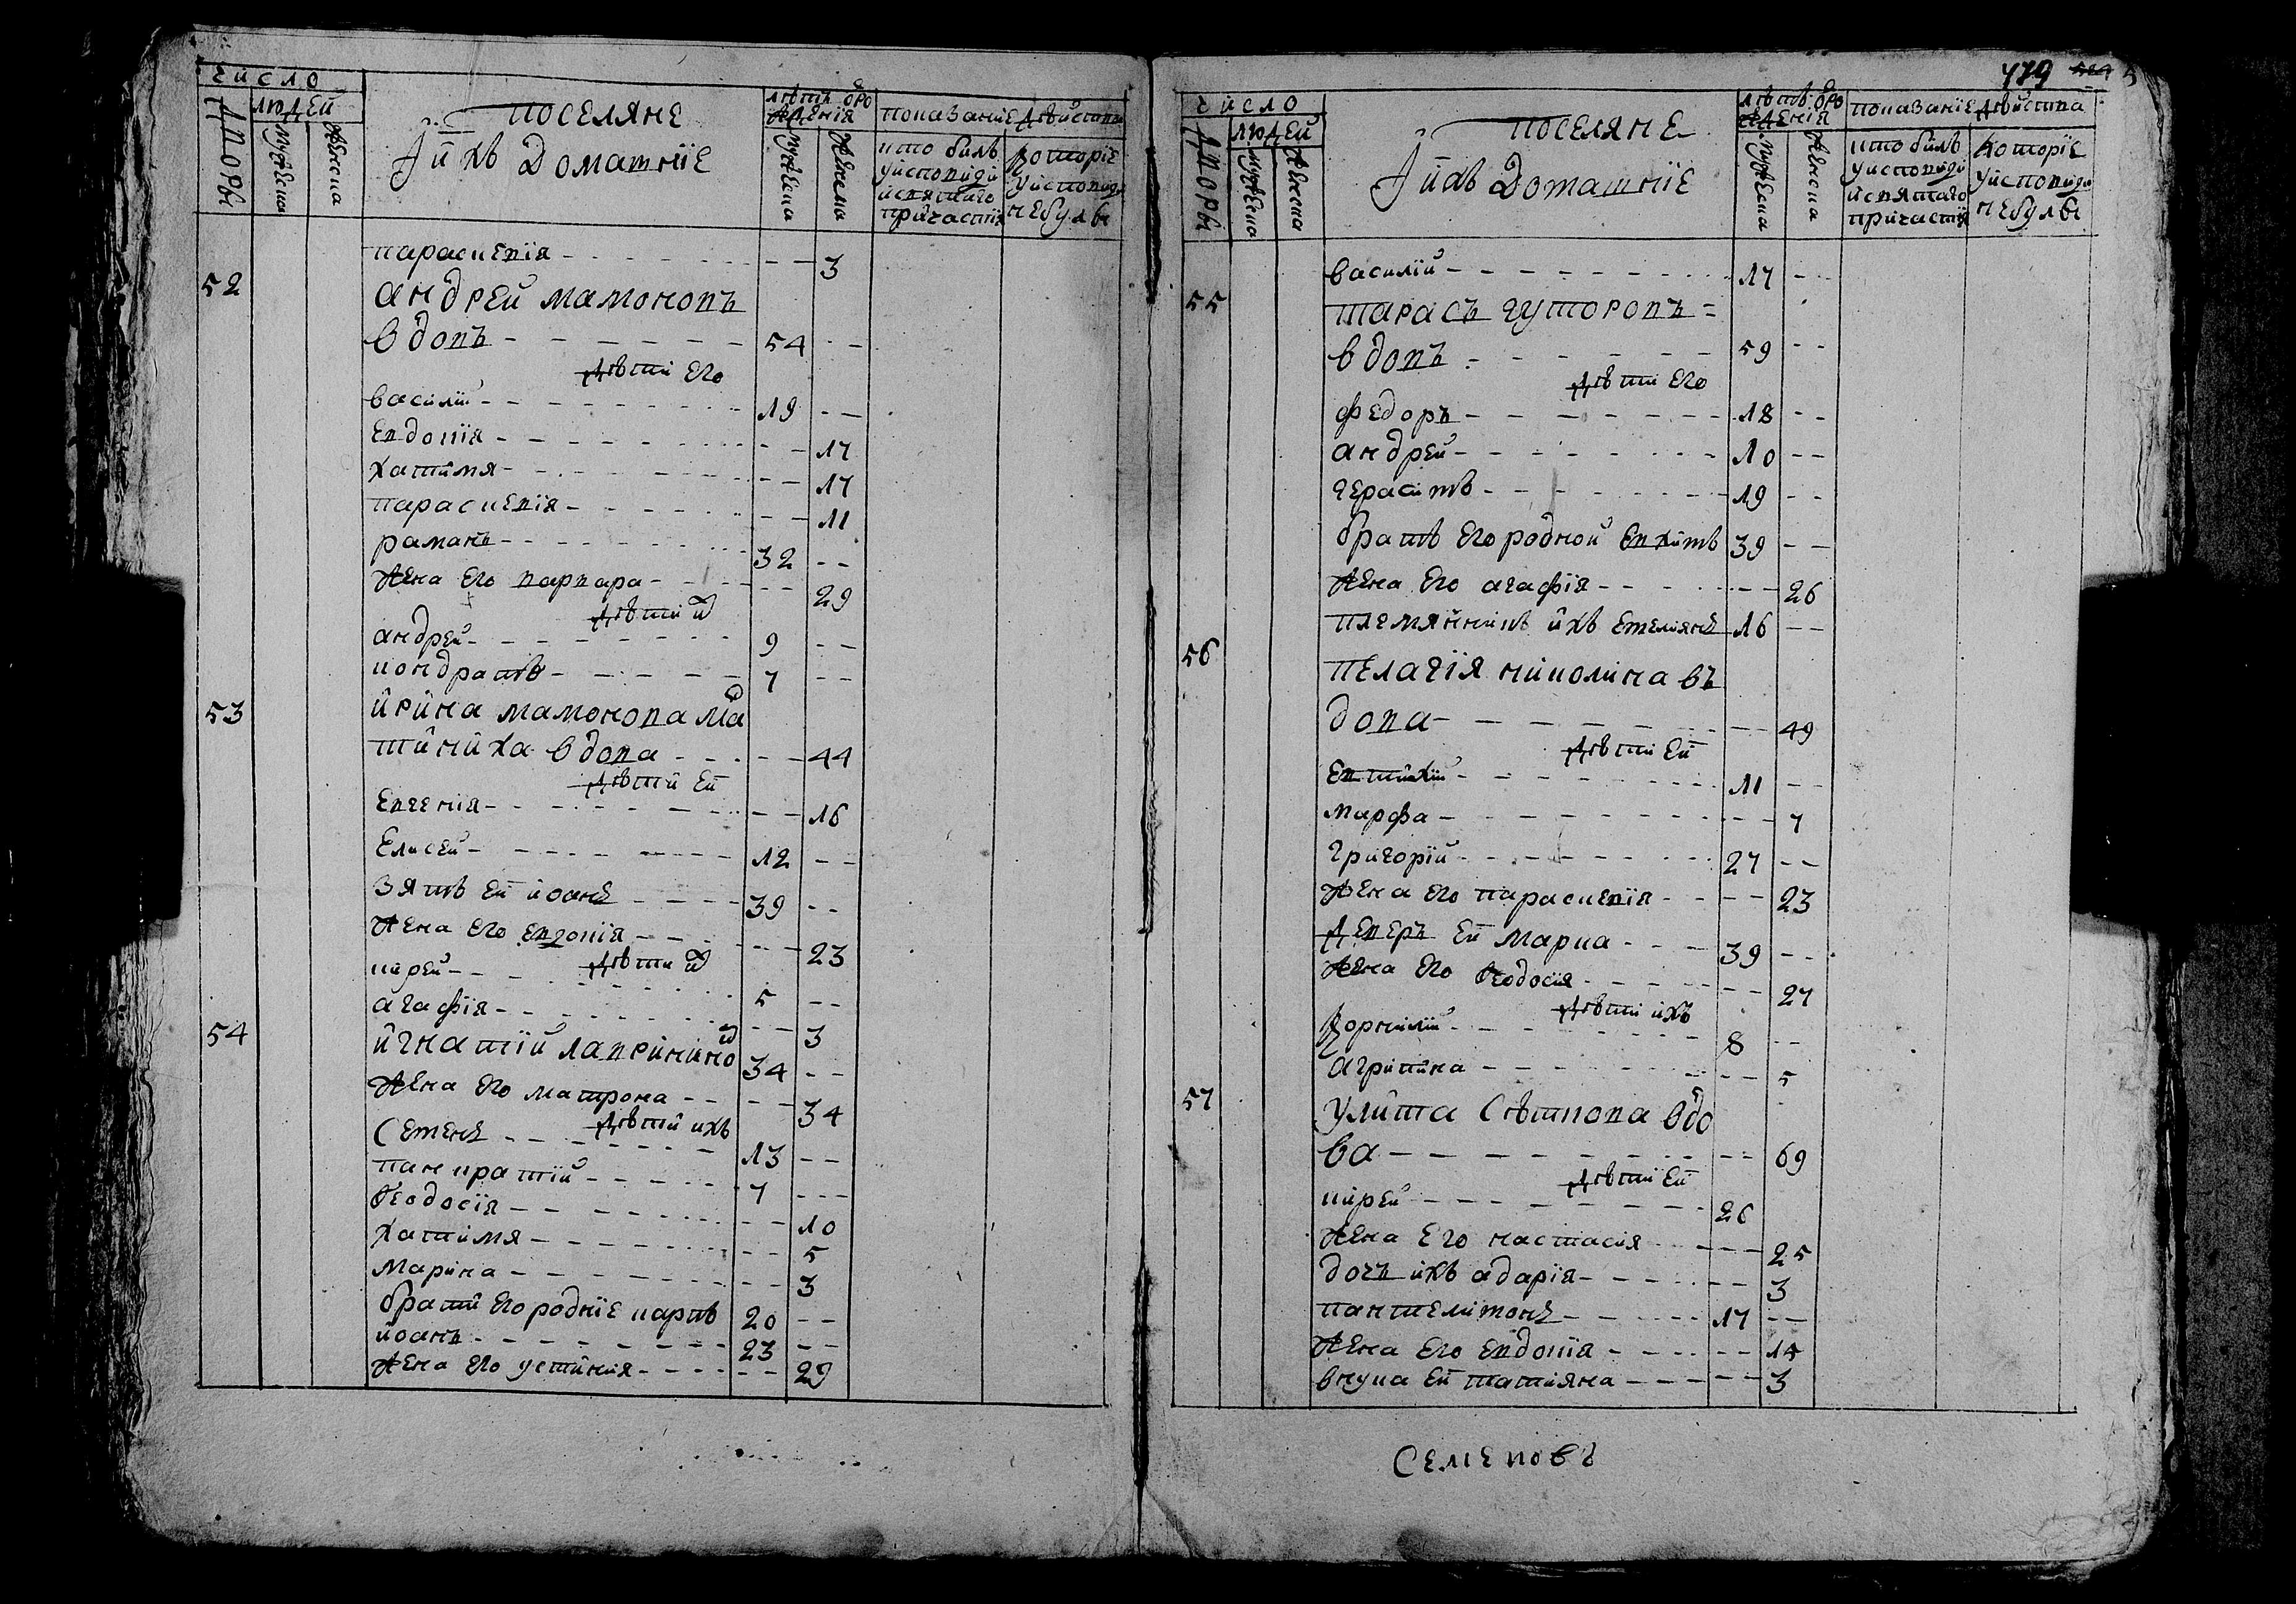 число
людей
дворы
мужеска
женска
поселяне
и ихъ Домашніе
лѣтъ ѿ ро
жденія
мужеска
женска
показаніе дѣйства
кто былъ
у исповѣди
и святаго
причастія
которіе
у исповѣди
не були
параскевія - - 3
52
андрей мамоновъ
вдовъ - 54 - -
дѣти его
василій - 19 - -
Евдокія - - 17
хатимя - - 17
параскевія - - 11
раманъ - 32 - -
жена его варвара - - 29
дѣти их
андрей - 9 - -
кондратъ - 7 - -
53
ирина мамонова ма
тиниха вдова - - 44
дѣти ей
Евгенія - - 16
Елисей - 12 - -
зять ей иоанъ - 39 - -
жена его евдокія - - 23
дѣти их
кирей - 5 - -
агафія - - 3
54
игнатій лаврикино 34 - -
жена его матрона - - 34
дѣти ихъ
Семенъ - 13 - -
панкратій - 7 - -
Ѳеодосія - - 10
хатимя - - 5
Марина - - 3
брати его родніе карпъ 20 - -
иоанъ - 23 - -
жена его устиния - - 29
479
число
людей
дворы
мужеска
женска
поселяне
и ихъ Домашніе
лѣтъ ѿ ро
жденія
мужеска
женска
показаніе дѣйства
кто былъ
у исповѣди
и святаго
причастія
которіе
у исповѣди
не були
василій - 17 - -
55
тарасъ гуторовъ =
вдовъ - 59 - -
дѣти его
федоръ - 18 - -
андрей - 10 - -
герасимъ - 19 - -
братъ его родной Евхимъ 39 - -
жена его агафія - - 26
племянникъ ихъ Емелиянъ 16 - -
56
пелагія николина въ
дова - - 49
дѣти ей
Евтихій - 11 - -
Марфа - - 7
григорій - 27 - -
жена его параскевія - - 23
деверъ ей Марка - 39 - -
жена его Ѳеодосія - - 27
дѣти ихъ
Корнилій - 8 - -
агрипина - - 5
57
улита Сѣткова вдо
ва - - 69
дѣти ей
кирей - 26
жена его настасия - - 25
дочъ ихъ адарія - - 3
пантелимонъ - 17 - -
жена его Евдокія - - 15
внука ей татияна - - 3
Семеновъ